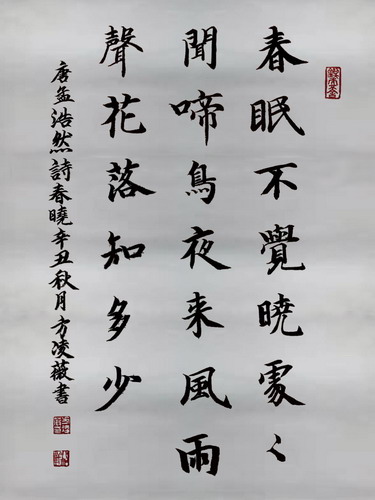 春眠不覺曉處〻
聞啼鳥夜来風雨
聲花落知多少
唐孟浩然詩春曉辛丑秋月方凌薇書